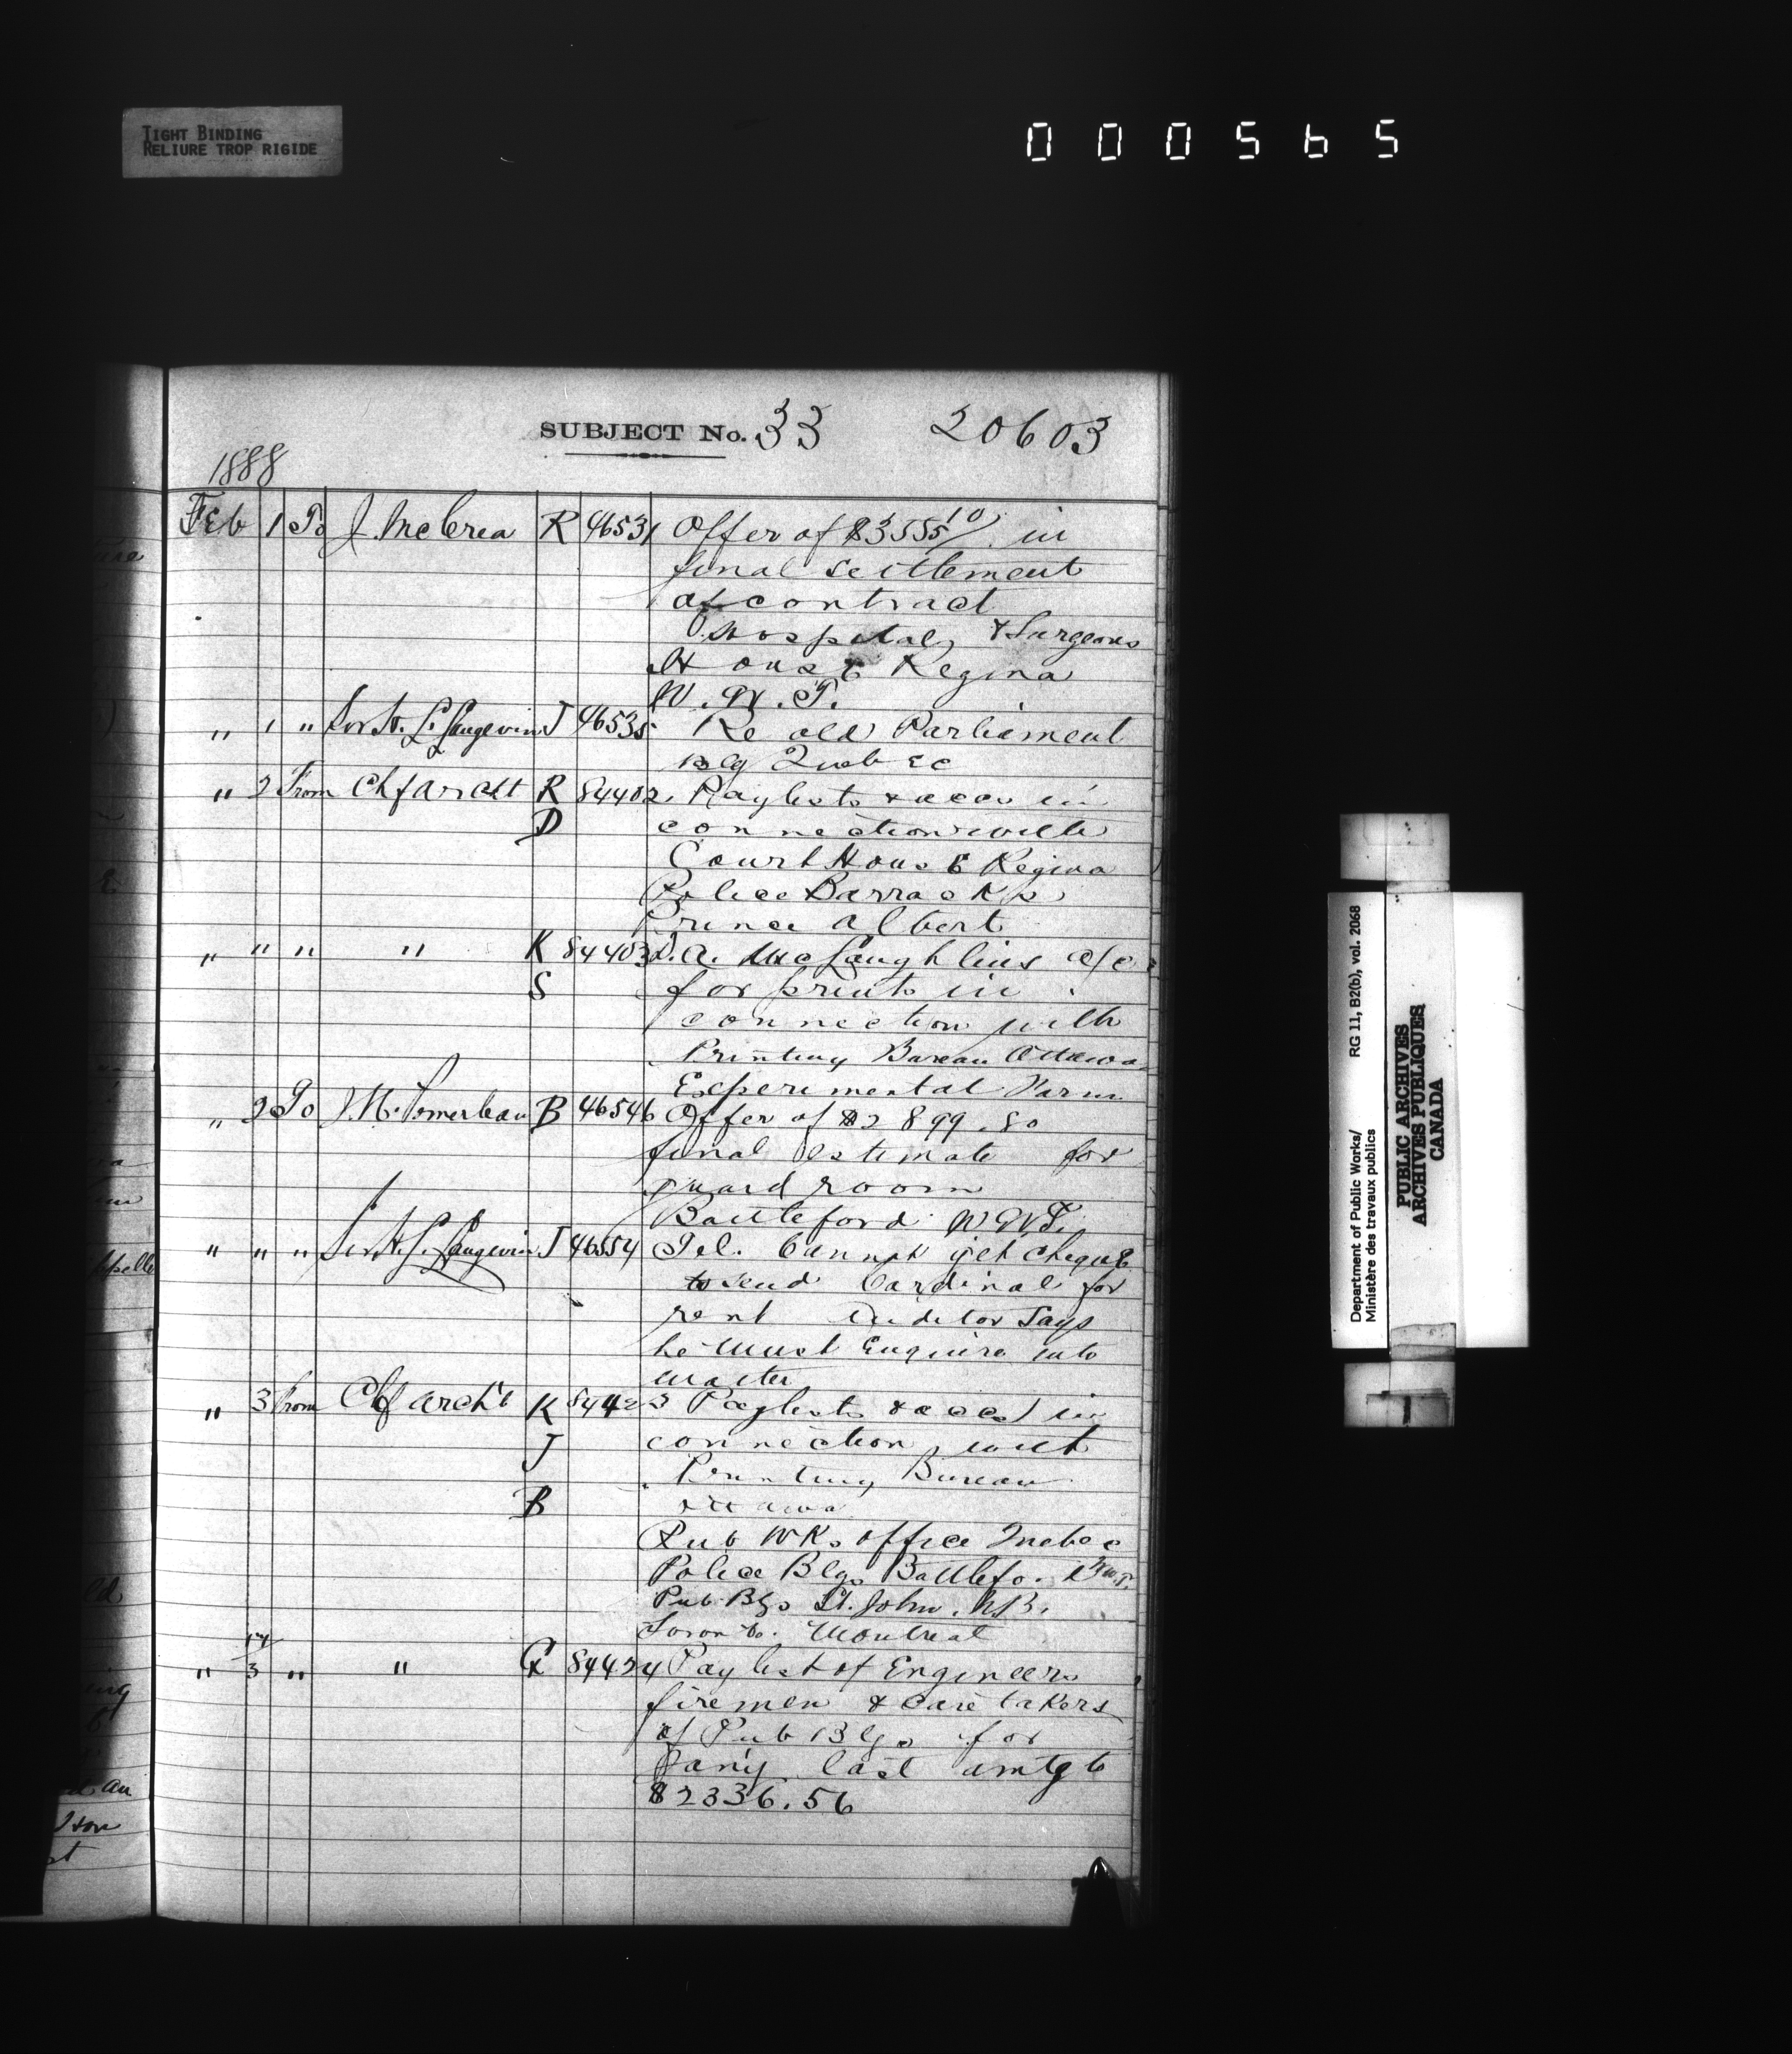 TIGHT BINDING
RELIURE TROP RIGIDE
000565
SUBJECT No. 33 20603
1888
Feb 1 To J. McCrea R 46531 Offer of $3555 10/ in
final settlement
of contract
Hospital & Surgeons
House Regina
N.W.T.
" 1 " Sir H. L. Langevin J 46535 Re old Parliament
Blg Quebec
" 2 From Chf Archt R 84402 Paylists & accs in
D connection with
Court House Regina
Police Barracks
Prince Albert
" " " " K 84403 D.A. McLaughlins a/c
S for prints in
connection with
Printing Bureau Ottawa
Experimental Farm
" 2 To J. M. Pomerleau B 46546 Offer of $2899.80
final estimate for
guard room
Battleford N.W.T.
" " " Sir H. L. Langevin J 46554 Tel. Cannot get cheque
to send Cardinal for
rent Auditor says
he must enquire into
matter
" 3 From Chf Archt K 84423 Paylists & accs in
J connection with
Printing Bureau
B Ottawa
Pub Wks office Quebec
Police Blgs Battlefo. N.W.T.
Pub Blgs St. John. N.B.
Toronto. Montreal
14/
" 3 " " G 84424 Pay list of Engineers
firemen & caretakers
of Pub Blgs for
Jany last amtg to
$2336.56
Department of Public Works/
Ministère des travaux publics
RG 11, B2(b), vol. 2068
PUBLIC ARCHIVES
ARCHIVES PUBLIQUES
CANADA